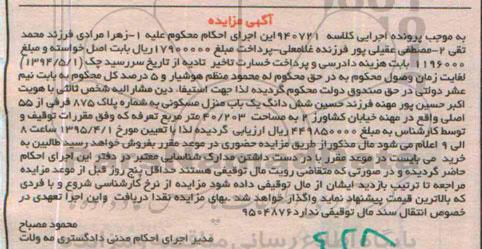 آگهی مزایده
به موجب پرونده اجرایی کلاسه ۹۴۰۷۲۱ این اجرای احکام محکوم علیه ۱-زهرا مرادی فرزند محمد
تقی ۲-مصطفی عقیلی پور فرزنده غلامعلی-پرداخت مبلغ ۱۷۹۰۰۰۰۰ ریال بابت اصل خواسته و مبلغ
۱۱۹۶۰۰۰ بابت هزینه دادرسی و پرداخت خسارت تاخیر تادیه از تاریخ سررسید چک (۱۳۹۴/۵/۱)
لغایت زمان وصول محکوم به در حق محکوم له محمود منظم هوشیار و ۵ درصد کل محکوم به بابت نیم
عشر دولتی در حق صندوق دولت محکوم گردیده لذا جهت استیفاء دین مشارالیه شخص ثالثی با هویت
اکبر حسین پور مهنه فرزند حسین شش دانگ یک باب منزل مسکونی به شماره پلاک ۸۷۵ فرقی از ۵۵
اصلی واقع در مهنه خیابان کشاورز ۲ به مساحت ۴۰/۲۰۳ متر مربع تعرفه که وفق مقررات توقیف و
توسط کارشناس به مبلغ ۴۴۹۸۵۰۰۰۰ ریال ارزیابی گردیده لذا با تعیین مورخ ۱۳۹۵/۴/۱ ساعت ۸
الی ۹ اعلام می شود مال مذکور از طریق مزایده حضوری در موعد مقرر بفروش خواهد رسید طالبین به
خرید می بایست در موعد مقرر با در دست داشتن مدارک شناسایی معتبر در دفتر این اجرای احکام
حاضر گردیده و در صورتی که متقاضی رویت مال توقیفی هستند حداقل پنج روز قبل از موعد مزایده
مراجعه تا ترتیب بازدید ایشان از مال توقیفی داده شود مزایده از نرخ کارشناسی شروع و با فردی
که بالاترین قیمت پیشنهاد نماید واگذار خواهد شد .بهای مزایده نقدا دریافت واین اجرا تعهدی در
خصوص انتقال سند مال توقیفی ندارد ۹۵۰۴۸۷۶
محمود مصباح
مدیر اجرای احکام مدنی دادگستری مه ولات